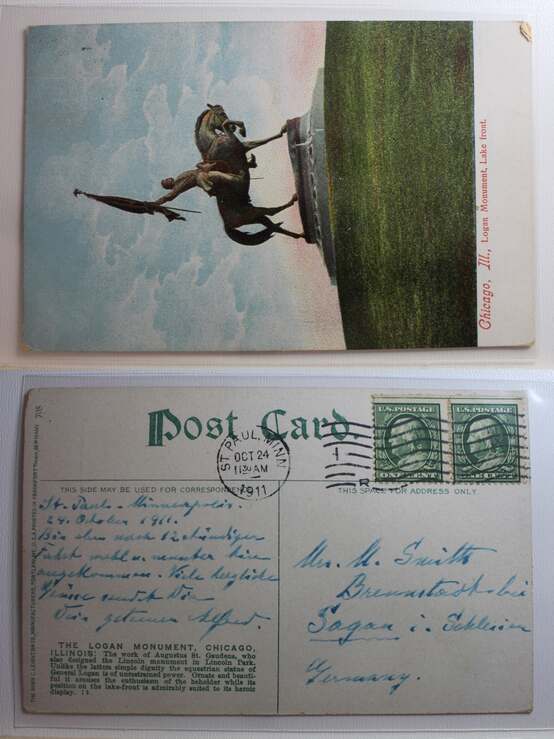 Chicago, Ill., Logan Monument, Lake front.
Post Card
ST. PAUL, MINN
OCT 24
11 30 AM
1911
U.S. POSTAGE
ONE CENT
U.S. POSTAGE
THIS SIDE MAY BE USED FOR CORRESPONDENCE
THIS SPACE FOR ADDRESS ONLY
St. Paul - Minneapolis.
24. Oktober 1911.
Bin eben nach 12 stündiger
Fahrt wohl u. munter hier
angekommen. Viele herzliche
Grüsse sendet Dir
Dein getreuer Alfred.
Mrs. M. Smitts
Brennstadt bei
Sagan i. Schlesien
Germany.
THE LOGAN MONUMENT, CHICAGO,
ILLINOIS: The work of Augustus St. Gaudens, who
also designed the Lincoln monument in Lincoln Park.
Unlike the latters simple dignity the equestrian status of
General Logan is of unrestrained power. Ornate and beauti-
ful it arouses the enthusiasm of the beholder while its
position on the lake-front is admirably suited to its heroic
display.